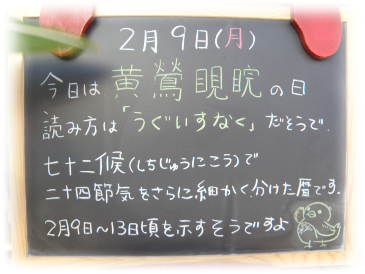 2月9日(月)
今日は黄鶯睍睆の日
読み方は「うぐいすなく」だそうで、
七十二候(しちじゅうにこう)で
二十四節気をさらに細かく分けた暦です。
2月9日～13日頃を示すそうですよ